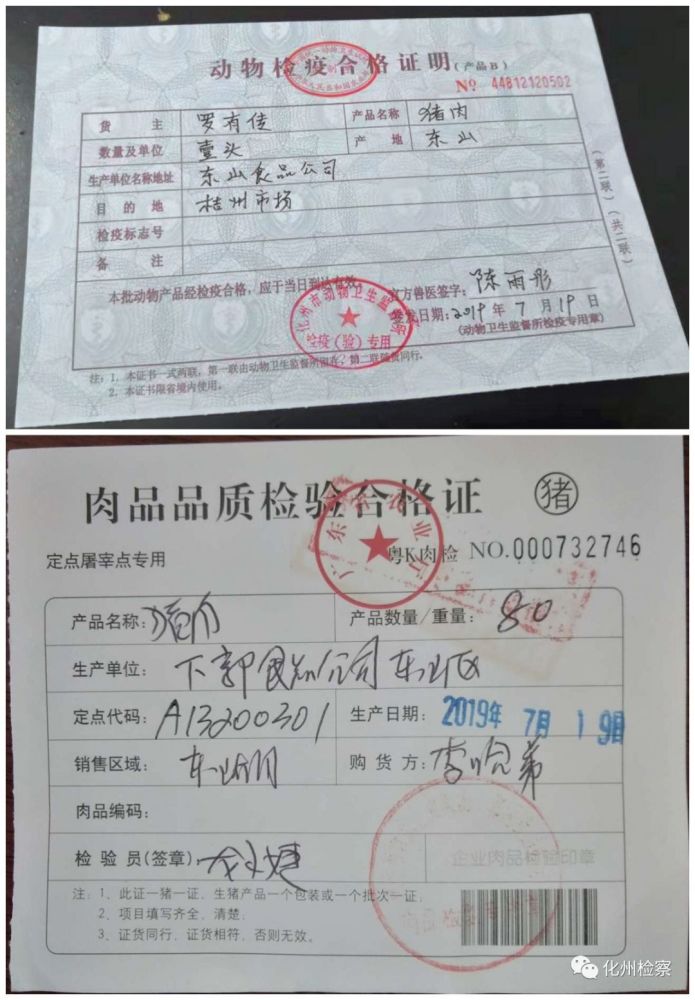 动物检疫合格证明(产品B)
No. 44812120502
货 主 罗有佳 产品名称 猪肉
数量及单位 壹头 产 地 东山
生产单位名称地址 东山食品公司
目的地 桔州市场
检疫标志号
备 注
本批动物产品经检疫合格，应于当日到达有效。
官方兽医签字：陈雨彤
签发日期：2019年7月19日
(动物卫生监督所检疫专用章)
化州市动物卫生监督所
检疫（验）专用
(第二联)
(共二联)
注：1. 本证书一式两联，第一联由动物卫生监督所留存，第二联随货同行。
2. 本证书限省境内使用。
肉品品质检验合格证 猪
定点屠宰点专用 粤K肉检 NO.000732746
产品名称：猪肉 产品数量/重量：80
生产单位：下郭食品公司东山区
定点代码：A13200301 生产日期：2019年 7月 19日
销售区域： 购货方：
肉品编码：
检验员(签章) 企业肉品检验印章
注：1、此证一猪一证，生猪产品一个包装或一个批次一证；
2、项目填写齐全，清楚；
3、证货同行，证货相符，否则无效。
化州检察